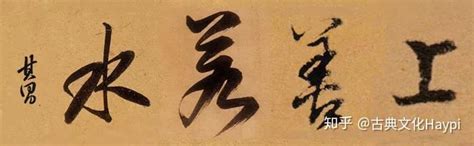 上善若水
其昌
知乎 @古典文化Haypi